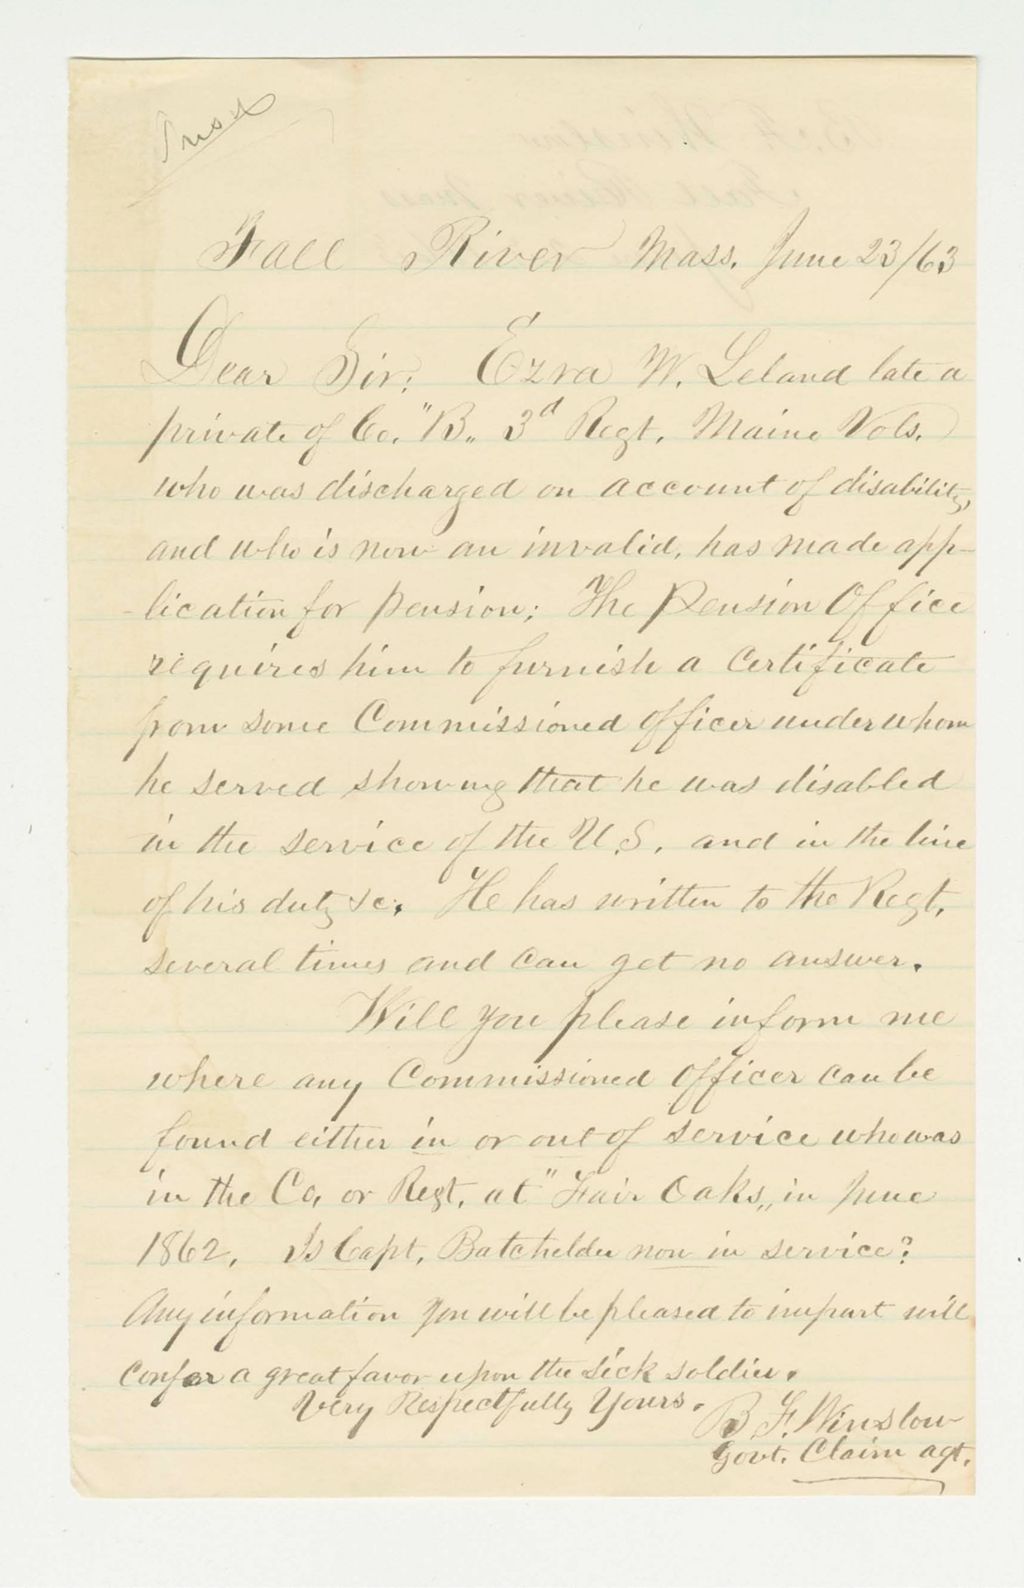 Fall River Mass. June 23/63
Dear Sir: Ezra W. Leland late a
private of Co. "B„ 3d Regt. Maine Vols.
who was discharged on account of disability,
and who is now an invalid, has made app-
-lication for pension; The Pension Office
requires him to furnish a Certificate
from some Commissioned Officer under whom
he served showing that he was disabled
in the service of the U.S. and in the line
of his duty &c. He has written to the Regt.
several times and can get no answer.
Will you please inform me
where any Commissioned Officer can be
found either in or out of service who was
in the Co. or Regt. at "Fair Oaks„ in June
1862. Is Capt. Batchelder now in service?
Any information you will be pleased to impart will
confer a great favor upon the sick soldier.
Very Respectfully Yours.
B. F. Winslow
Govt. Claim agt.